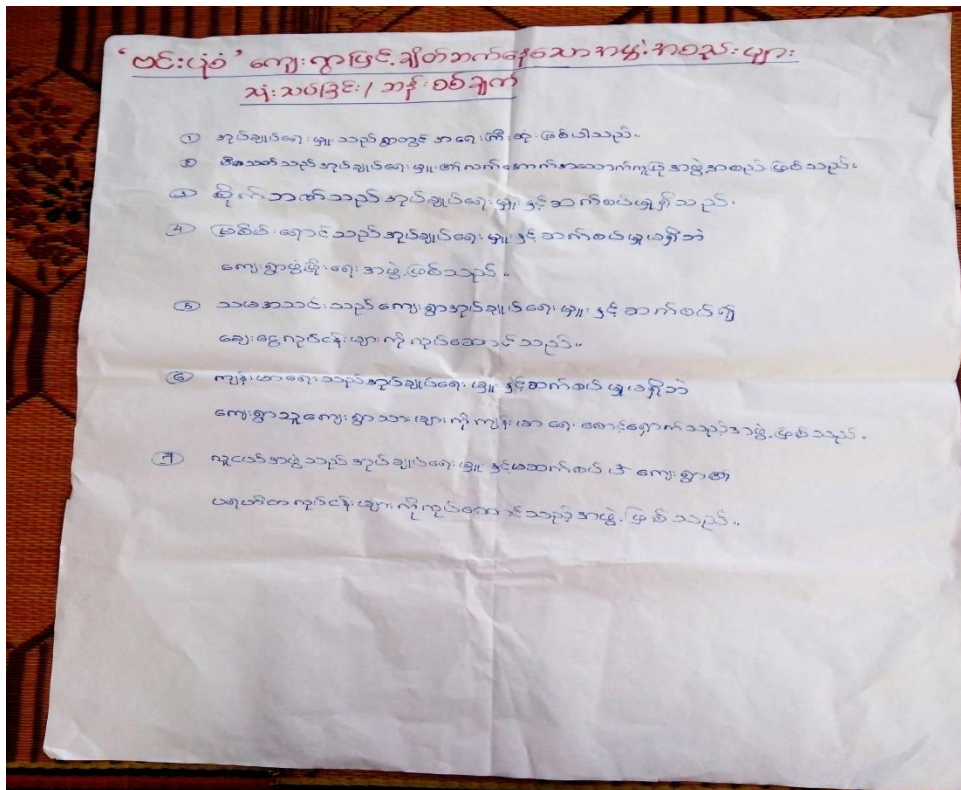 ‘ဗင်းပုံဝံ’ ကျေးရွာဖြင့် ချိတ်ဘက်နေသော အဖွဲ့အစည်းများ
သုံးသပ်ခြင်း / ဘန်းစစ်ချက်
① အုပ်ချုပ်ရေးမှူးသည် ရွာတွင် အရေးကြီးဆုံးဖြစ်ပါသည်။
② အုပ်ချုပ်ရေးမှူး၏ လက်အောက်အထောက်ကူပြုအဖွဲ့အစည်းဖြစ်သည်။
③ စိုက်ဘဏ်သည် အုပ်ချုပ်ရေးမှူးနှင့် ဆက်စပ်မှုရှိသည်။
④ မြစိမ်းရောင်သည် အုပ်ချုပ်ရေးမှူးနှင့် ဆက်စပ်မှုမရှိဘဲ
ကျေးရွာဖွံ့ဖြိုးရေးအဖွဲ့ဖြစ်သည်။
⑤ သမအသင်းသည် ကျေးရွာအုပ်ချုပ်ရေးမှူးနှင့် ဆက်စပ်၍
ချေးငွေလုပ်ငန်းများကိုလုပ်ဆောင်သည်။
⑥ ကျန်းမာရေးသည် အုပ်ချုပ်ရေးမှူးနှင့်ဆက်စပ်မှုမရှိဘဲ
ကျေးရွာသူကျေးရွာသားများကိုကျန်းမာရေးစောင့်ရှောက်သည့်အဖွဲ့ဖြစ်သည်။
⑦ လူငယ်အဖွဲ့သည် အုပ်ချုပ်ရေးမှူးနှင့်မဆက်စပ်ဘဲ ကျေးရွာ၏
ပရဟိတလုပ်ငန်းများကိုလုပ်ဆောင်သည့်အဖွဲ့ဖြစ်သည်။